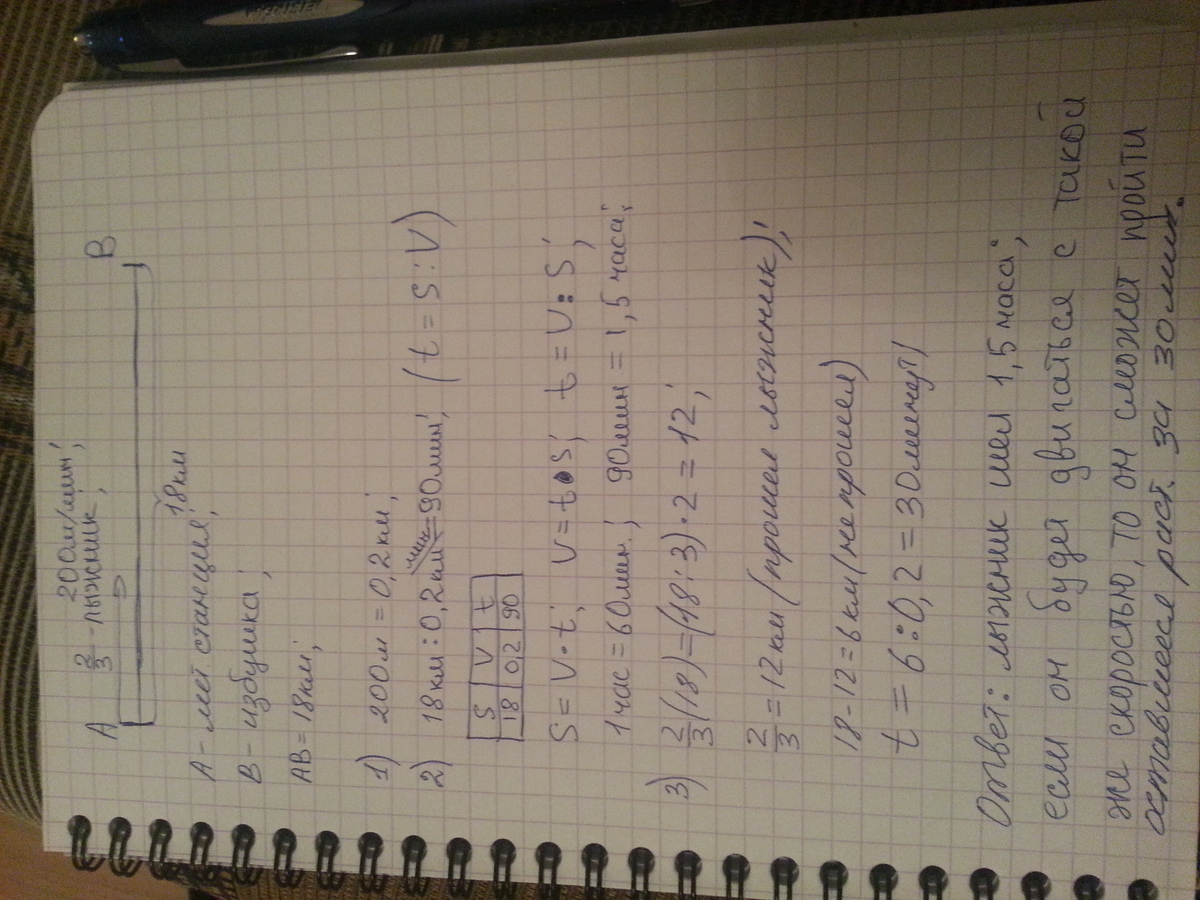 200м/мин;
A 2/3 - лыжник; B
18км
A - мет станция;
B - избушка;
AB = 18км;
1) 200м = 0,2км;
2) 18км : 0,2км = 90мин; (t = S : V)
мин
S V t
18 0,2 90
S = V · t; V = t · S; t = V : S;
1 час = 60мин.; 90мин = 1,5 часа;
3) 2/3 (18) = (18 : 3) · 2 = 12;
2/3 = 12км (прошел лыжник);
18 - 12 = 6км (не прошел)
t = 6 : 0,2 = 30 (минут)
Ответ: лыжник шел 1,5 часа;
если он будет двигаться с такой
же скоростью, то он сможет пройти
оставшееся раст. за 30 мин.